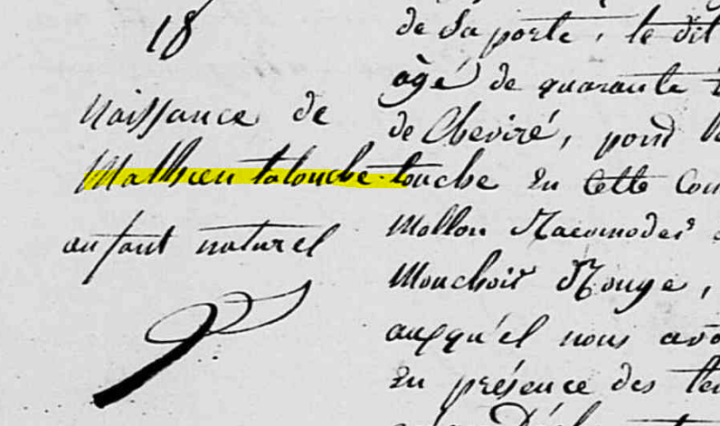 18
Naissance de
Mathieu talouche
enfant naturel
de sa porte, le dit
âgé de quarante
de Cheviré, pour
touche en cette Com
Mollon Racomodés
Mouchoir Rouge,
auxqu'el nous avo
en présence des te